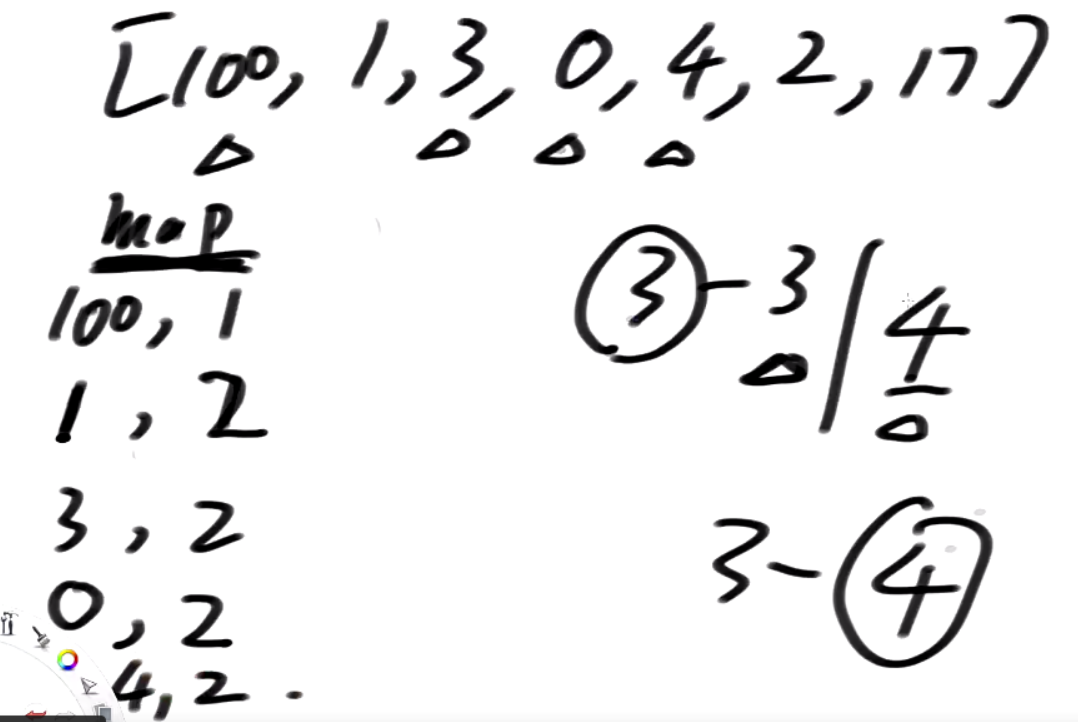 [100, 1, 3, 0, 4, 2, 17]
map
100, 1
1, 2
3, 2
0, 2
4, 2 .
3 - 3 | 4
3 - 4